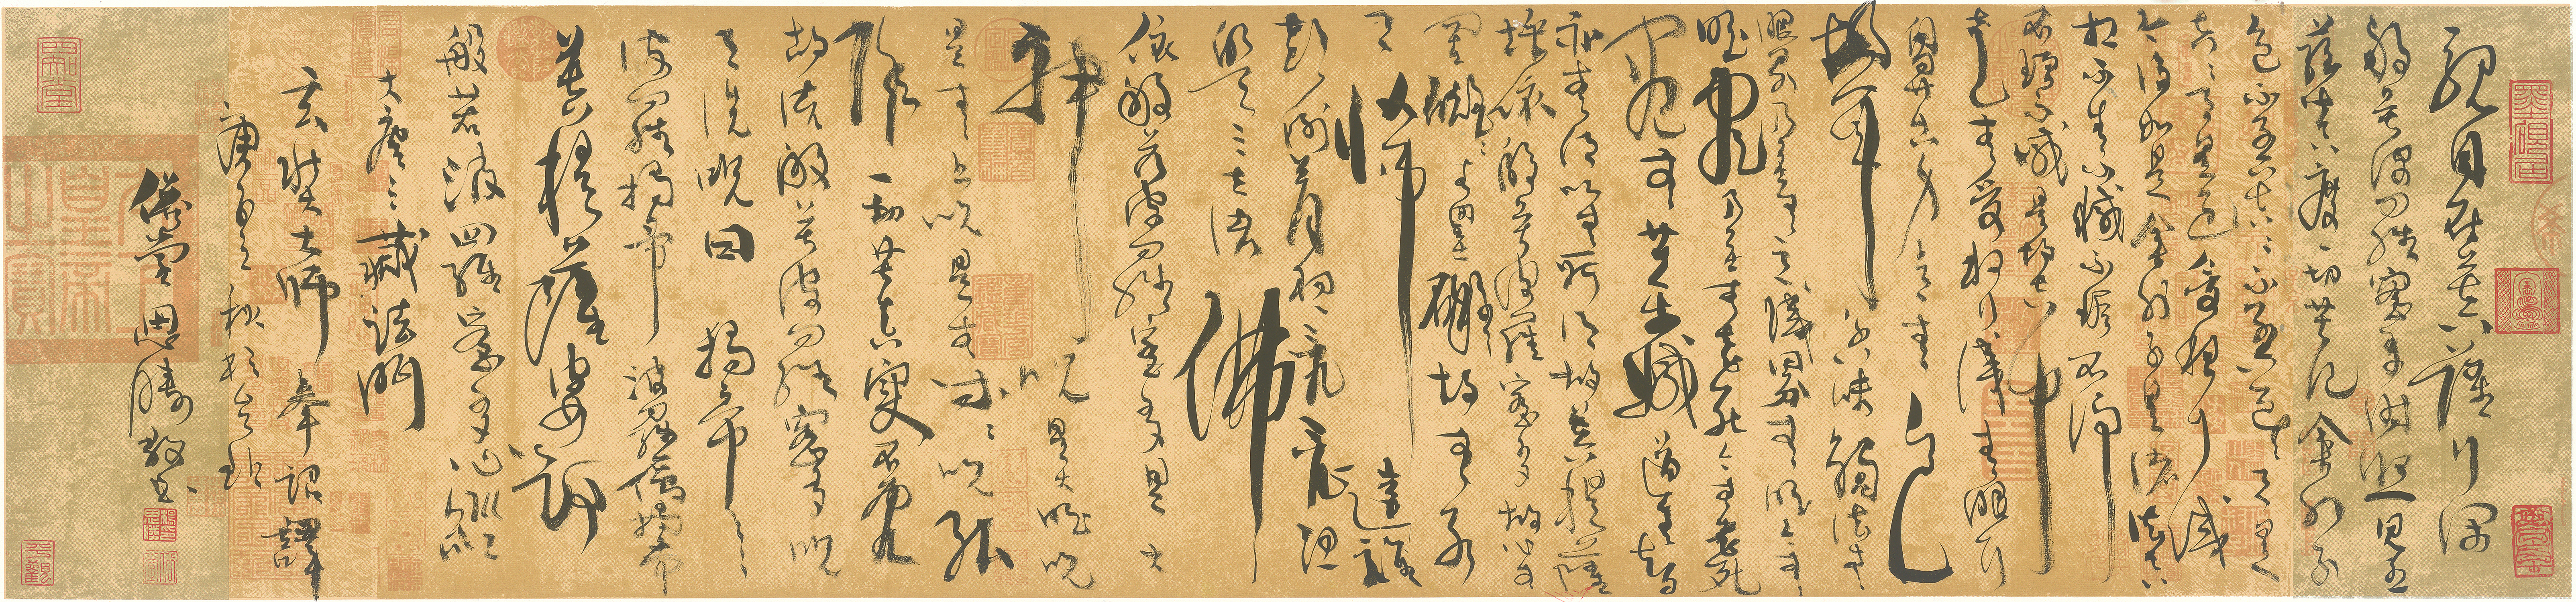 觀自在菩薩行深
般若波羅蜜多時照見五
蘊皆空度一切苦厄舍利子
色不異空空不異色色即是
空空即是色受想行識
亦復如是舍利子是諸法空
相不生不滅不垢不淨
不增不減是故空中
無色無受想行識無眼耳
鼻舌身意無色
聲香味觸法無
眼界乃至無意識界無無明亦
無明盡乃至無老死亦無老死
盡無苦集滅道無智
亦無得以無所得故菩提薩
埵依般若波羅蜜多故心無
罣礙無罣礙故無有
恐怖遠離
顛倒夢想究竟涅
槃三世諸佛
依般若波羅蜜多是大
神咒是大明咒
是無上咒是無等等咒能
除一切苦真實不虛
故說般若波羅蜜多咒
即說咒曰揭帝揭帝
波羅揭帝波羅僧揭帝
菩提薩婆訶
般若波羅蜜多心經
大唐三藏法師
玄奘大師奉詔譯
庚寅之秋於京
恩騰敬書